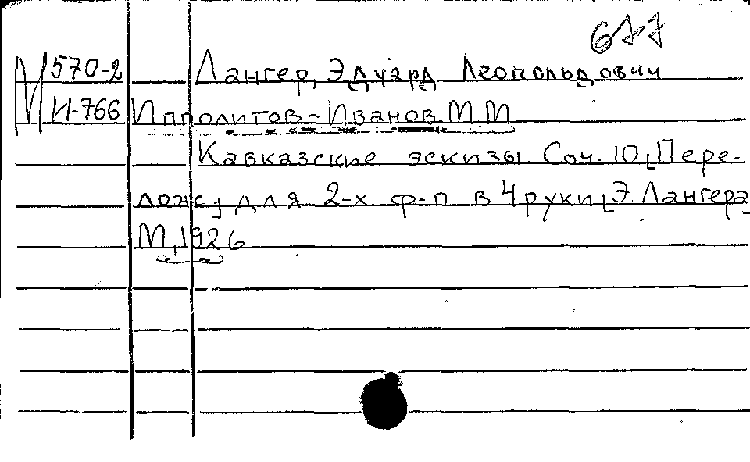 677
М 570-2 Лангер, Эдуард Леопольдович
И-766 Ипполитов-Иванов М М
Кавказские эскизы. Соч. 10. Пере-
лож. для 2-х ф-п в 4 руки Э. Лангера
М, 1926